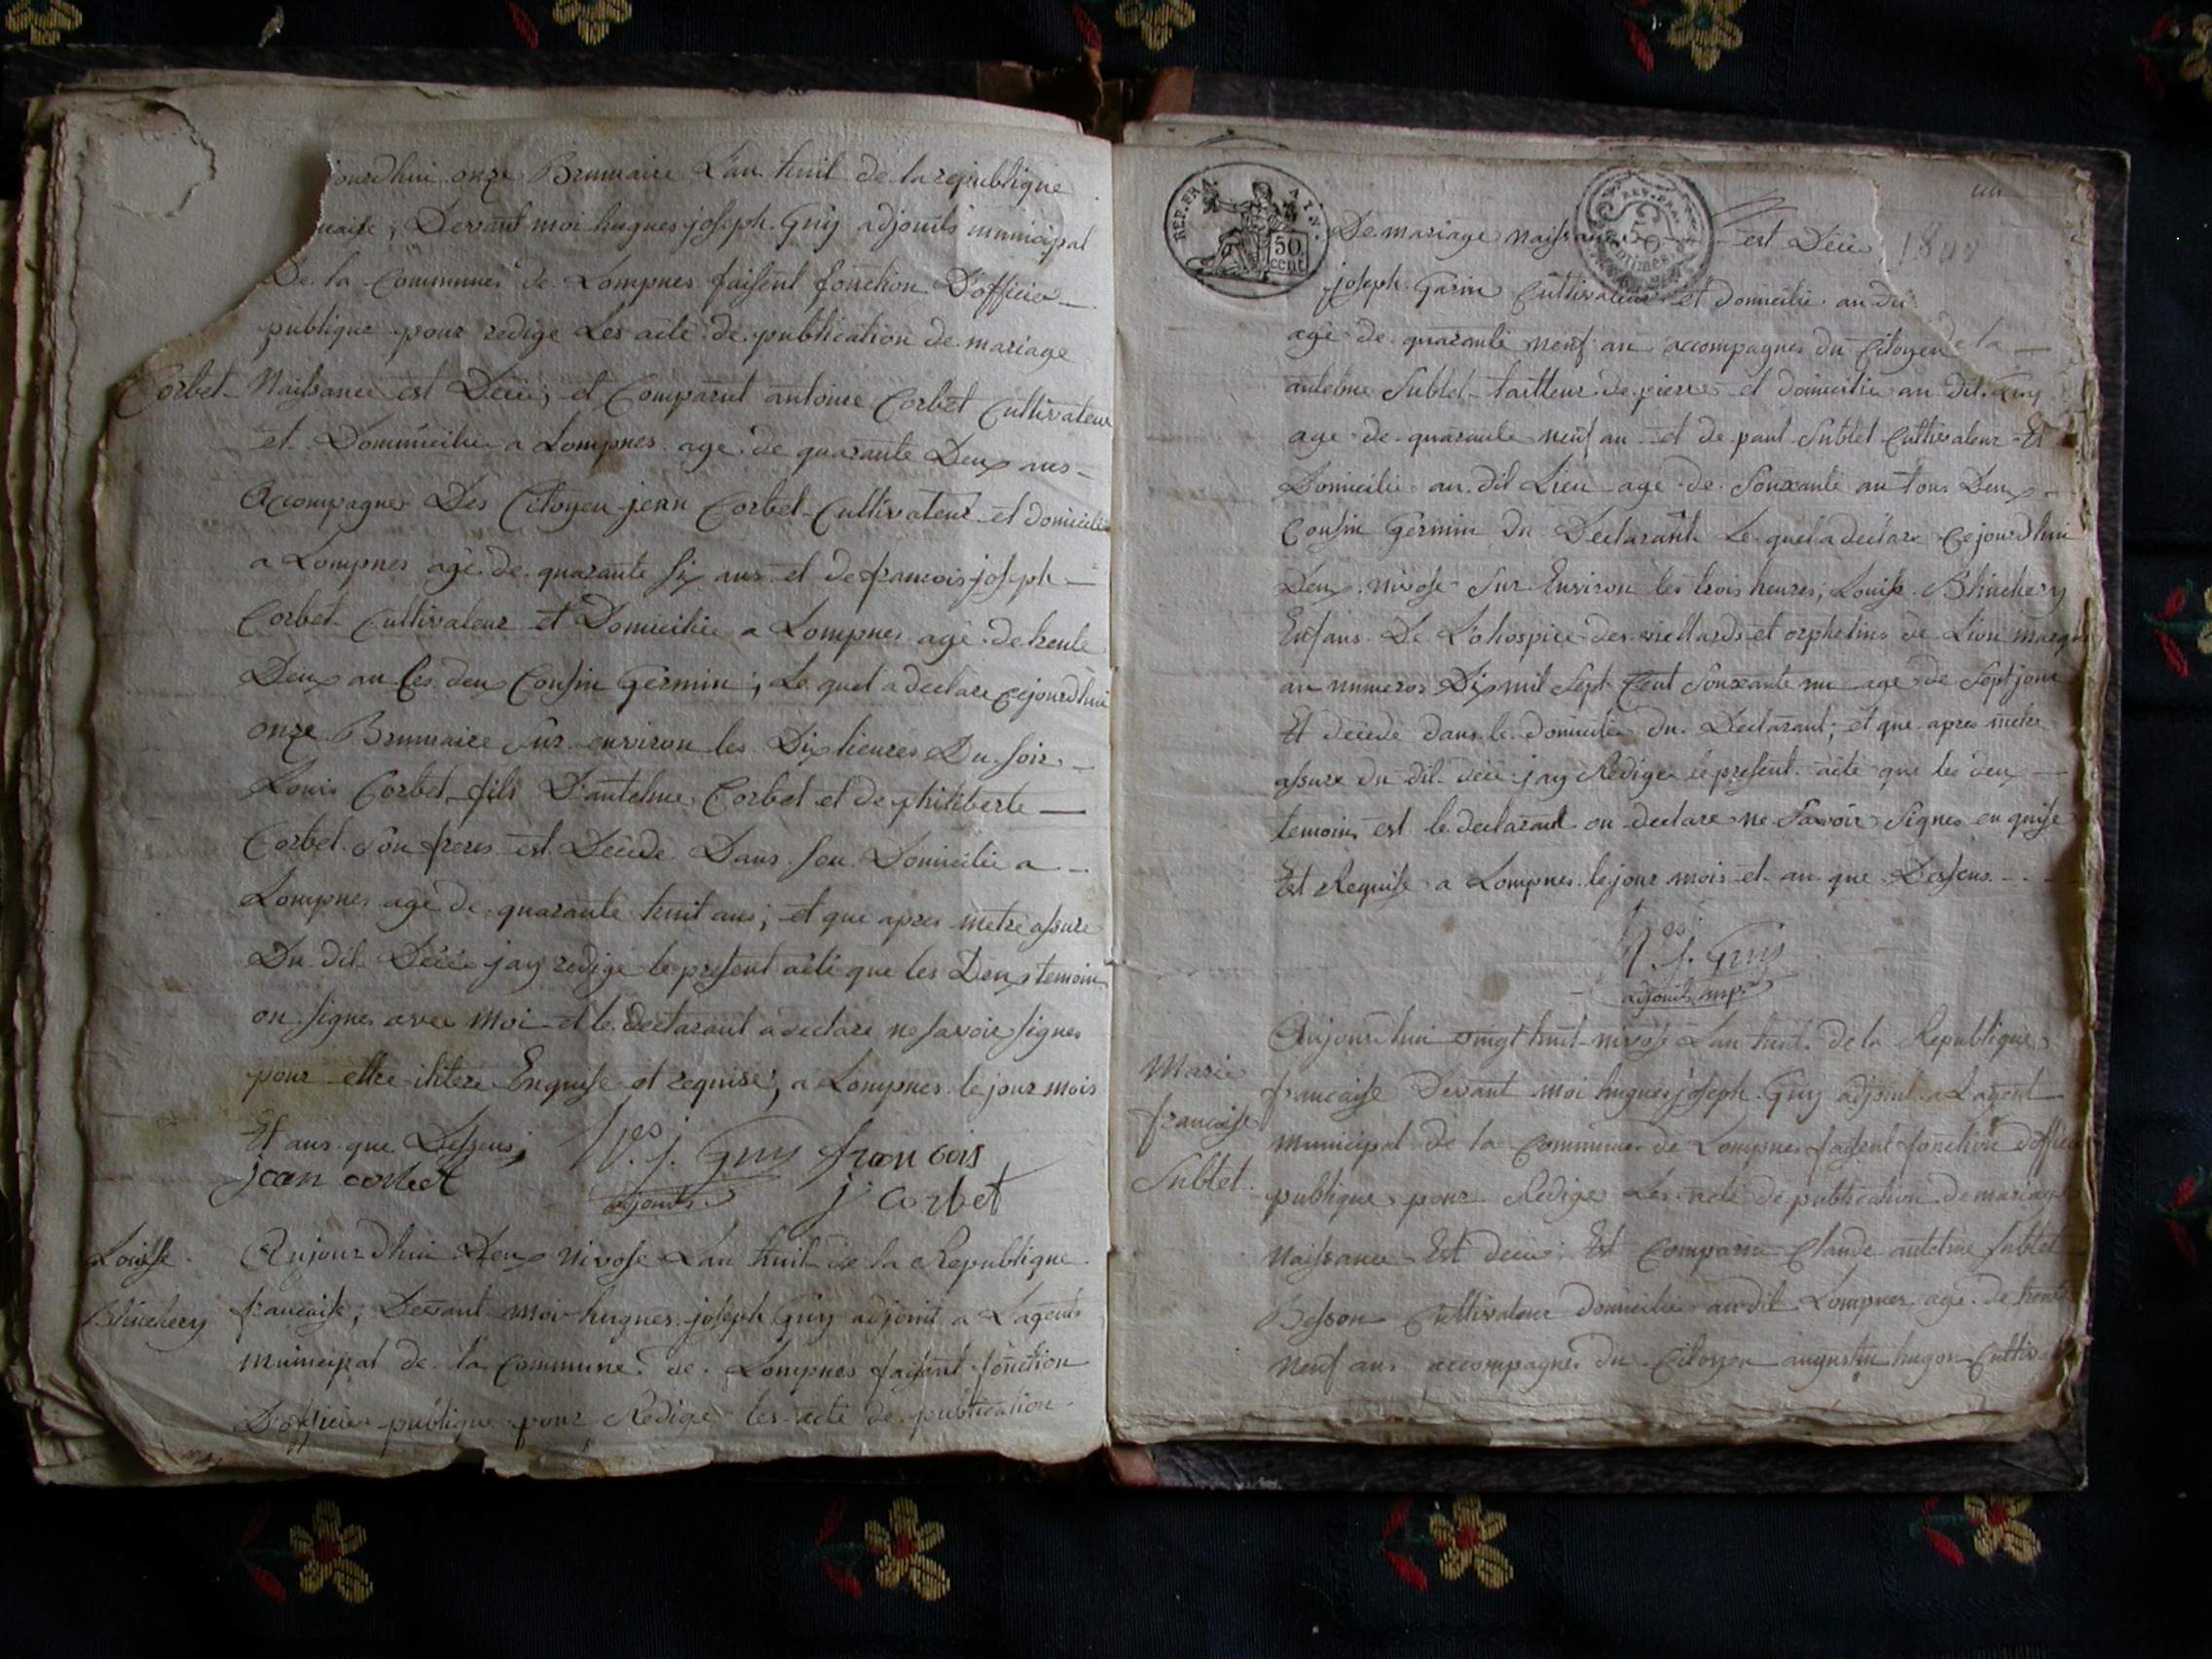 jourdhui onze Brumaire Lan huit de la republique
caise, Devant moi hugues joseph Guy adjoints municipal
De la Communes de Lompnes faisent fonction D'officier
publique pour redige Les acte de publication de mariage
Corbet Naissance est Décé, et Comparut antoine Corbet Cultivateur
et Dommicilie a Lompnes age de quarante Deux ans
Accompagnes Des Citoyen jean Corbet Cultivateur et domicilie
a Lompnes agé de quarante six ans et de francois joseph
Corbet Cultivateur et Domicilie a Lompnes agé de trente
Deux an les deux Cousin Germin, Le quel a declare cejourdhui
onze Brumaire sur environ les Dix heures Du soir
Louis Corbet fils D'antelme Corbet et de philiberte
Corbet son freres est Décéde Dans son Domicilie a
Lompnes agé de quarante huit ans, et que apres metre assure
Du dit Décé jay redige le present acte que les Deux temoin
on signes avec Moi et le declarant a declare ne savoir signes
pour ettre ilitere Enquise et requise, a Lompnes le jour mois
Et ans que Dessus
hues j. Guy francois
jean corbet
adjoints
j corbet
Louisse Aujourdhui Deux nivose Lan huit de la Republique
Bluchery francaise, Devant moi hugues joseph Guy adjoint a Lagents
municipal de la Commune de Lompnes faisant fonction
D'officier publique pour Redige les acte de publication
REP. FRA.
50
cent
un
De mariage Naissance est Décé
joseph Garin Cultivateur et domicilie au dit
age de quarante neuf an accompagnes du Citoyen
antelme Sublet tailleur de pierre et domicilie au dit
age de quarante neuf an et de paul Sublet Cultivateur Et
Domicilie au dit Lieu age de Souxante an tous Deux
Cousin Germin du Declarant Le quel a declare Cejourdhui
Deux nivose sur Environ les trois heures, Louise Bluchery
Enfans De L'ohospice des viellards et orphelins de Lion marque
au numeros Dix mil Sept Cent Souxante un age de Sept jour
Et décéde dans le domicilie du Declarant, et que apres metre
assure du dit décé jay Rediges le present acte que les deux
temoins est le declarant on declare ne Savoir Signes enquise
Est Requise a Lompnes le jour mois et an que Dessus
hues j. Guy
adjoint mpal
Aujourdhui vingt huit nivose Lan huit de la Republique
Marie francaise Devant moi hugues joseph Guy adjoint a Lagent
francoise municipal de la Communes de Lompnes faisent fonction dofficier
Sublet publique pour Rediges Les acte de publication de mariage
Naissance Est décé, Est Comparu Claude antelme Sublet
Besson Cultivateur domicilie au dit Lompnes age de trente
Neuf ans accompagnes du Citoyen augustin hugon Cultiva